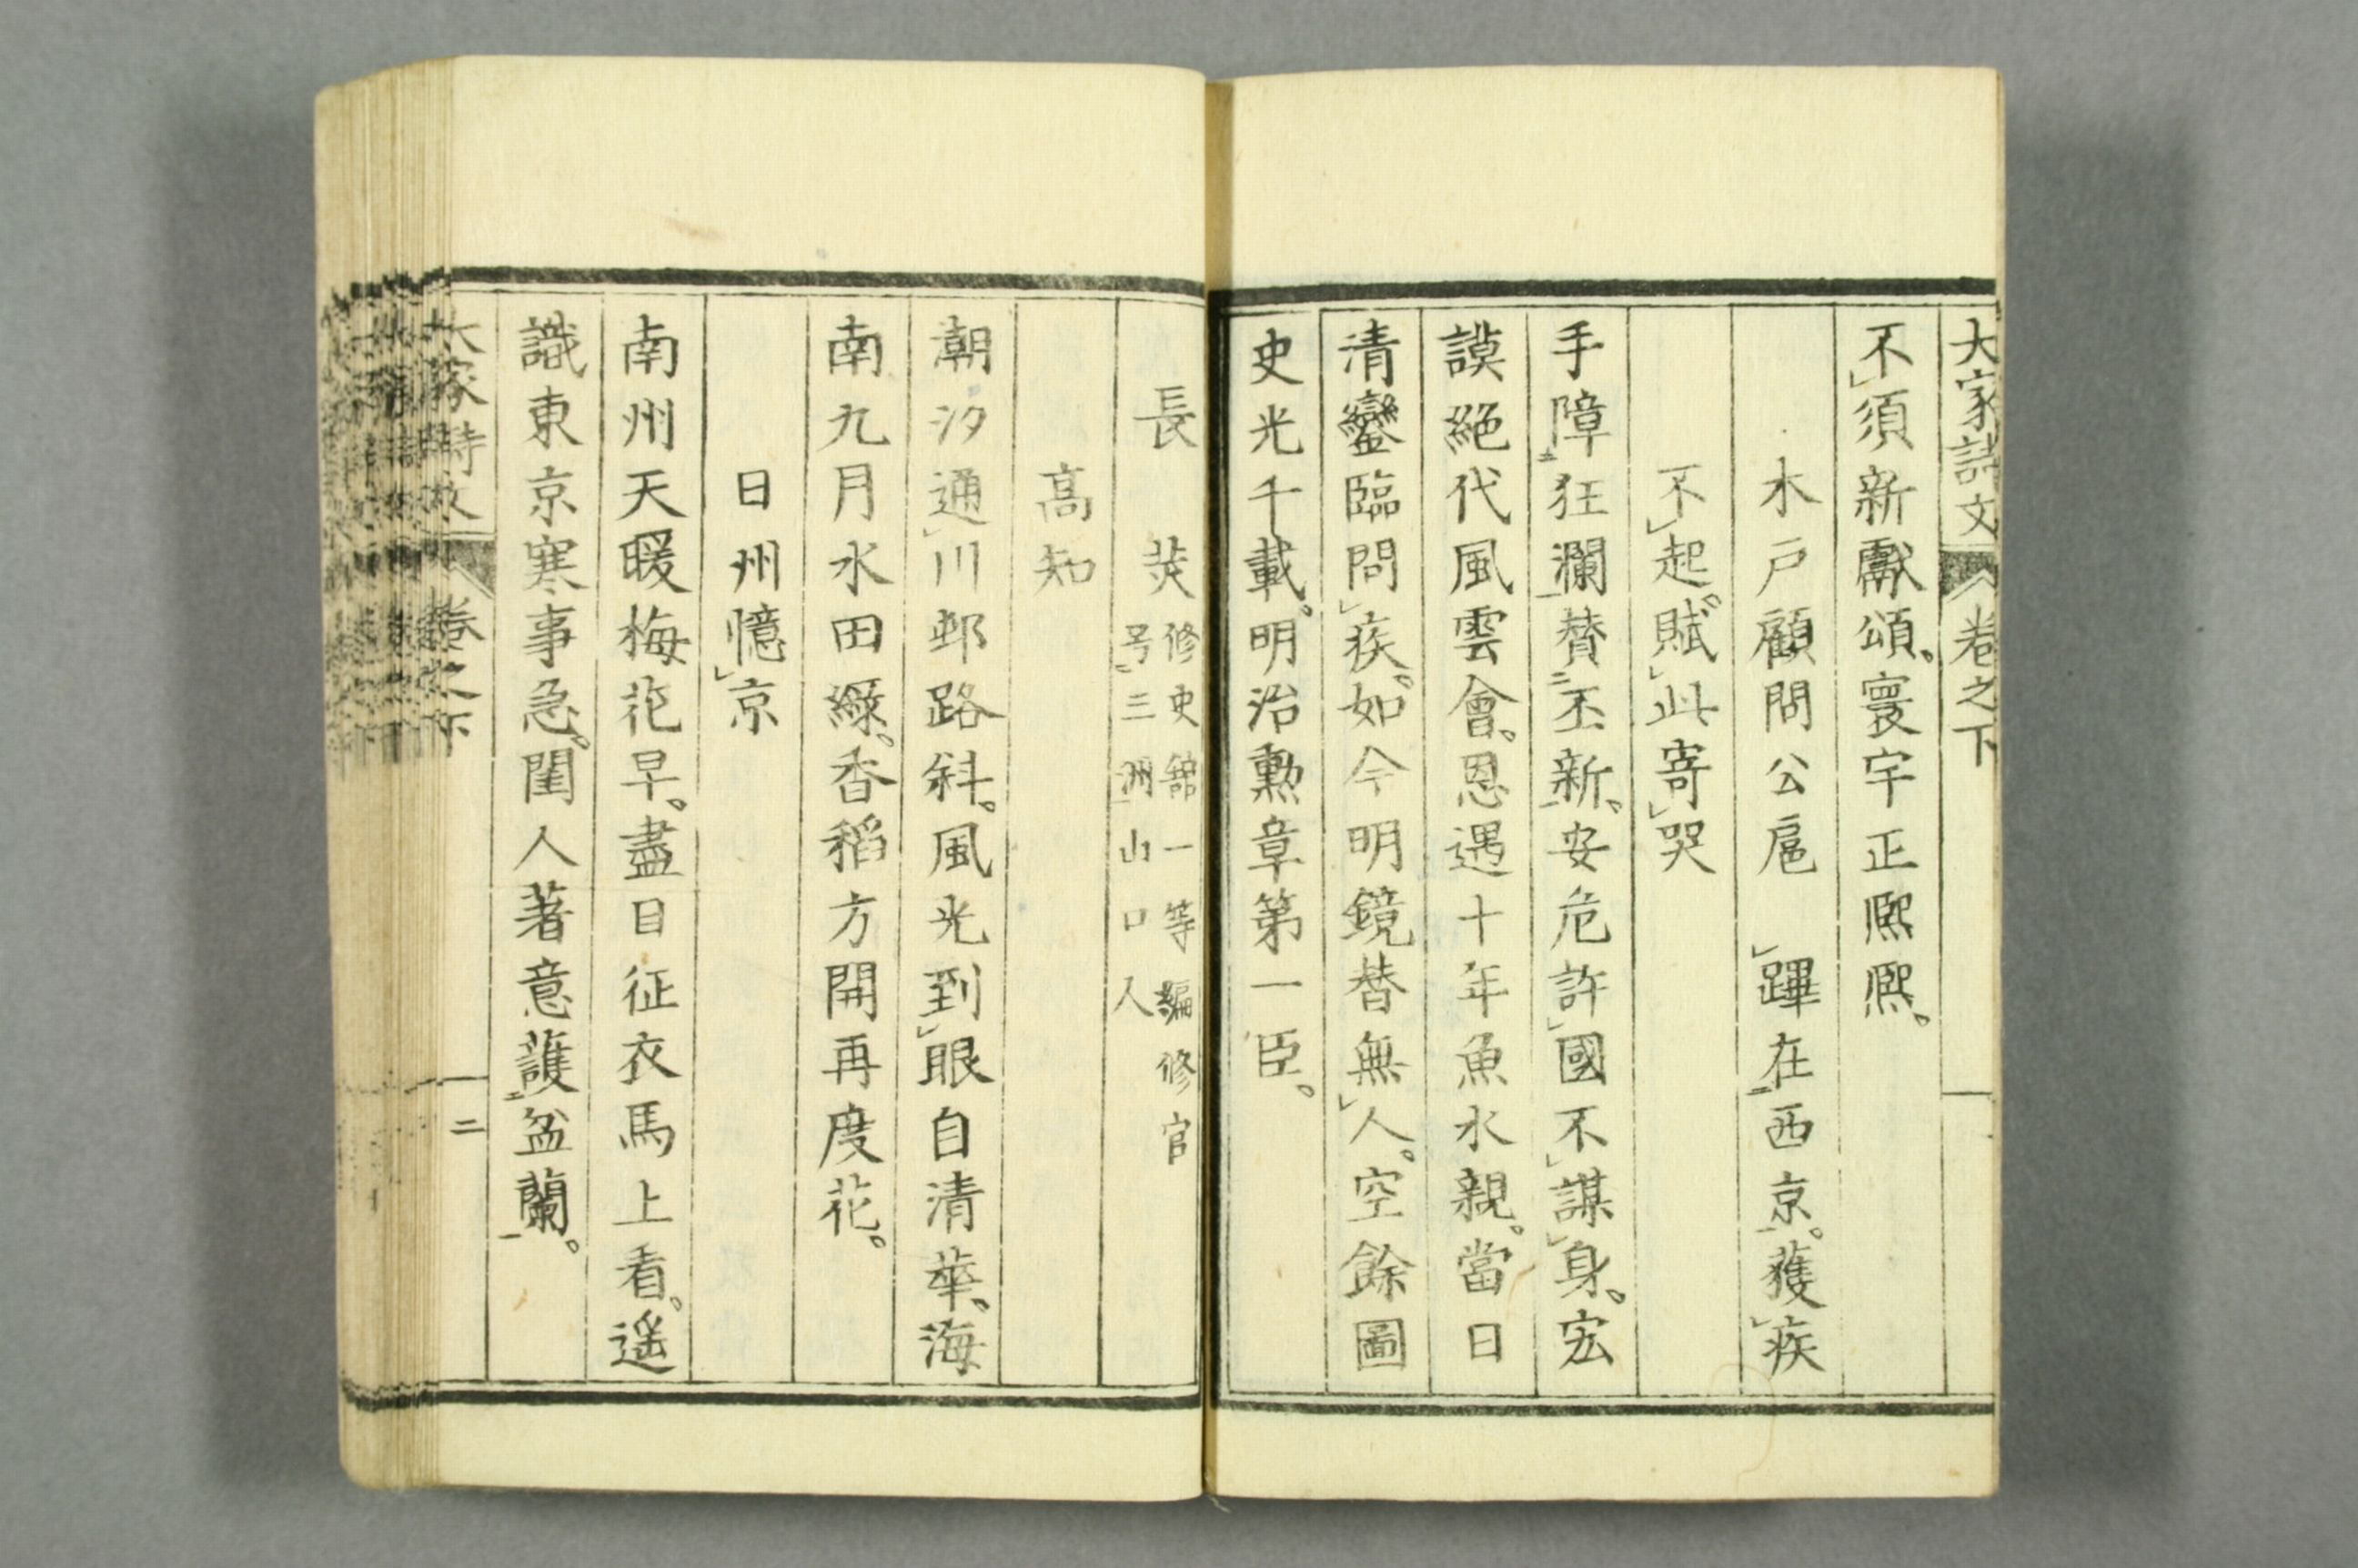 大家詩文 卷之下
不須新獻頌。寰宇正熈熈。
木戸顧問公扈 蹕在西京。獲疾
不起。賦此寄哭
手障狂瀾賛丕新。安危許國不謀身。宏
謨絕代風雲會。恩遇十年魚水親。當日
清鑾臨問疾。如今明鏡替無人。空餘圖
史光千載。明治勲章第一臣。
長 炗 修史舘一等編修官
号三洲山口人
高知
潮汐通川邨路斜。風光到眼自清華。海
南九月水田綠。香稻方開再度花。
日州憶京
南州天暖梅花早。盡日征衣馬上看。遥
識東京寒事急。閨人著意護盆蘭。
大家詩文 卷之下 二